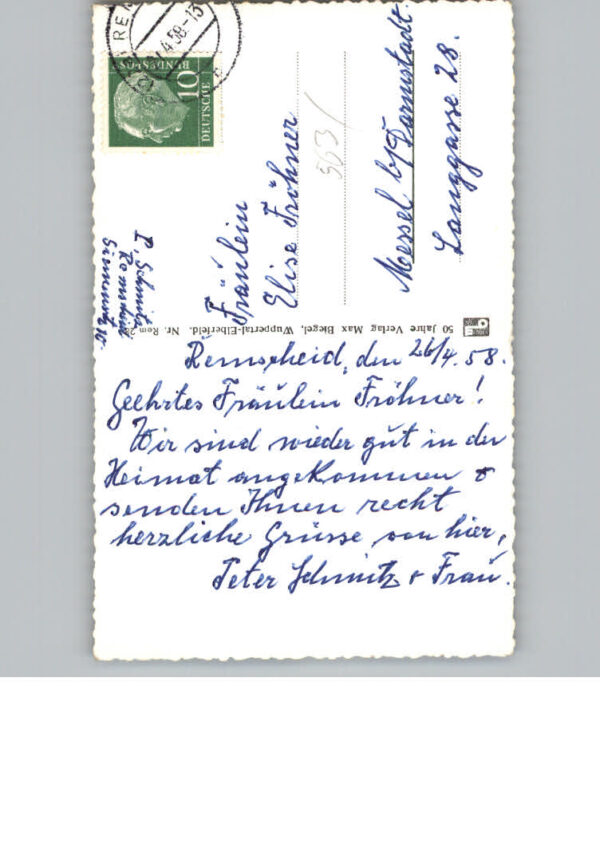 REM
4.58-13
DEUTSCHE
BUNDESPOST
10
P. Schmitz
Remscheid
Fräulein
Elise Fröhner
563/
Messel b/Darmstadt.
Langgasse 28.
50 Jahre Verlag Max Biegel, Wuppertal-Elberfeld. Nr. Rem
Remscheid, den 26/4.58.
Geehrtes Fräulein Fröhner!
Wir sind wieder gut in der
Heimat angekommen &
senden Ihnen recht
herzliche Grüsse von hier,
Peter Schmitz & Frau.